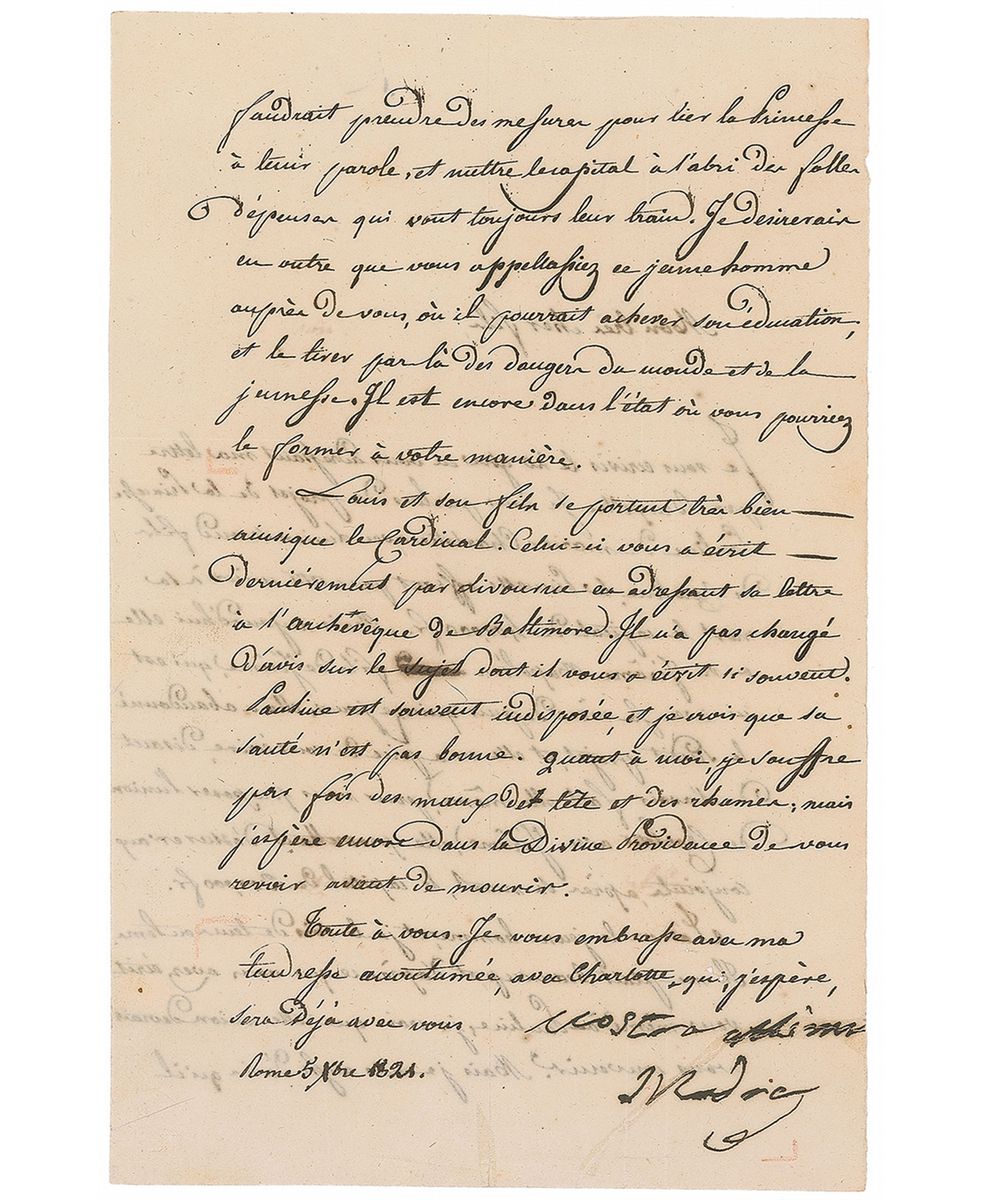 faudrait prendre des mesures pour lier la Princesse
à tenir parole, et mettre le capital à l'abri des folles
dépenses qui vont toujours leur train. Je desirerais
en outre que vous appellassiez ce jeune homme
auprès de vous, où il pourrait achever son éducation,
et le tirer par là des dangers du monde et de la
jeunesse. Il est encore dans l'état où vous pourriez
le former à votre manière.
Louis et son fils se portent très bien
ainsi que le Cardinal. Celui-ci vous a écrit
dernièrement par Livourne en adressant sa lettre
à l'archévêque de Baltimore. Il n'a pas changé
d'avis sur le sujet dont il vous a écrit si souvent.
Pauline est souvent indisposée, et je crois que sa
santé n'est pas bonne. Quant à moi, je souffre
par fois des maux de tête et des rhumes; mais
j'espère encore dans la Divine Providence de vous
revoir avant de mourir.
Toute à vous. Je vous embrasse avec ma
tendresse accoutumée, avec Charlotte, qui, j'espère,
sera déjà avec vous. Vostra
Rome 5 Xbre 1821.
Madre